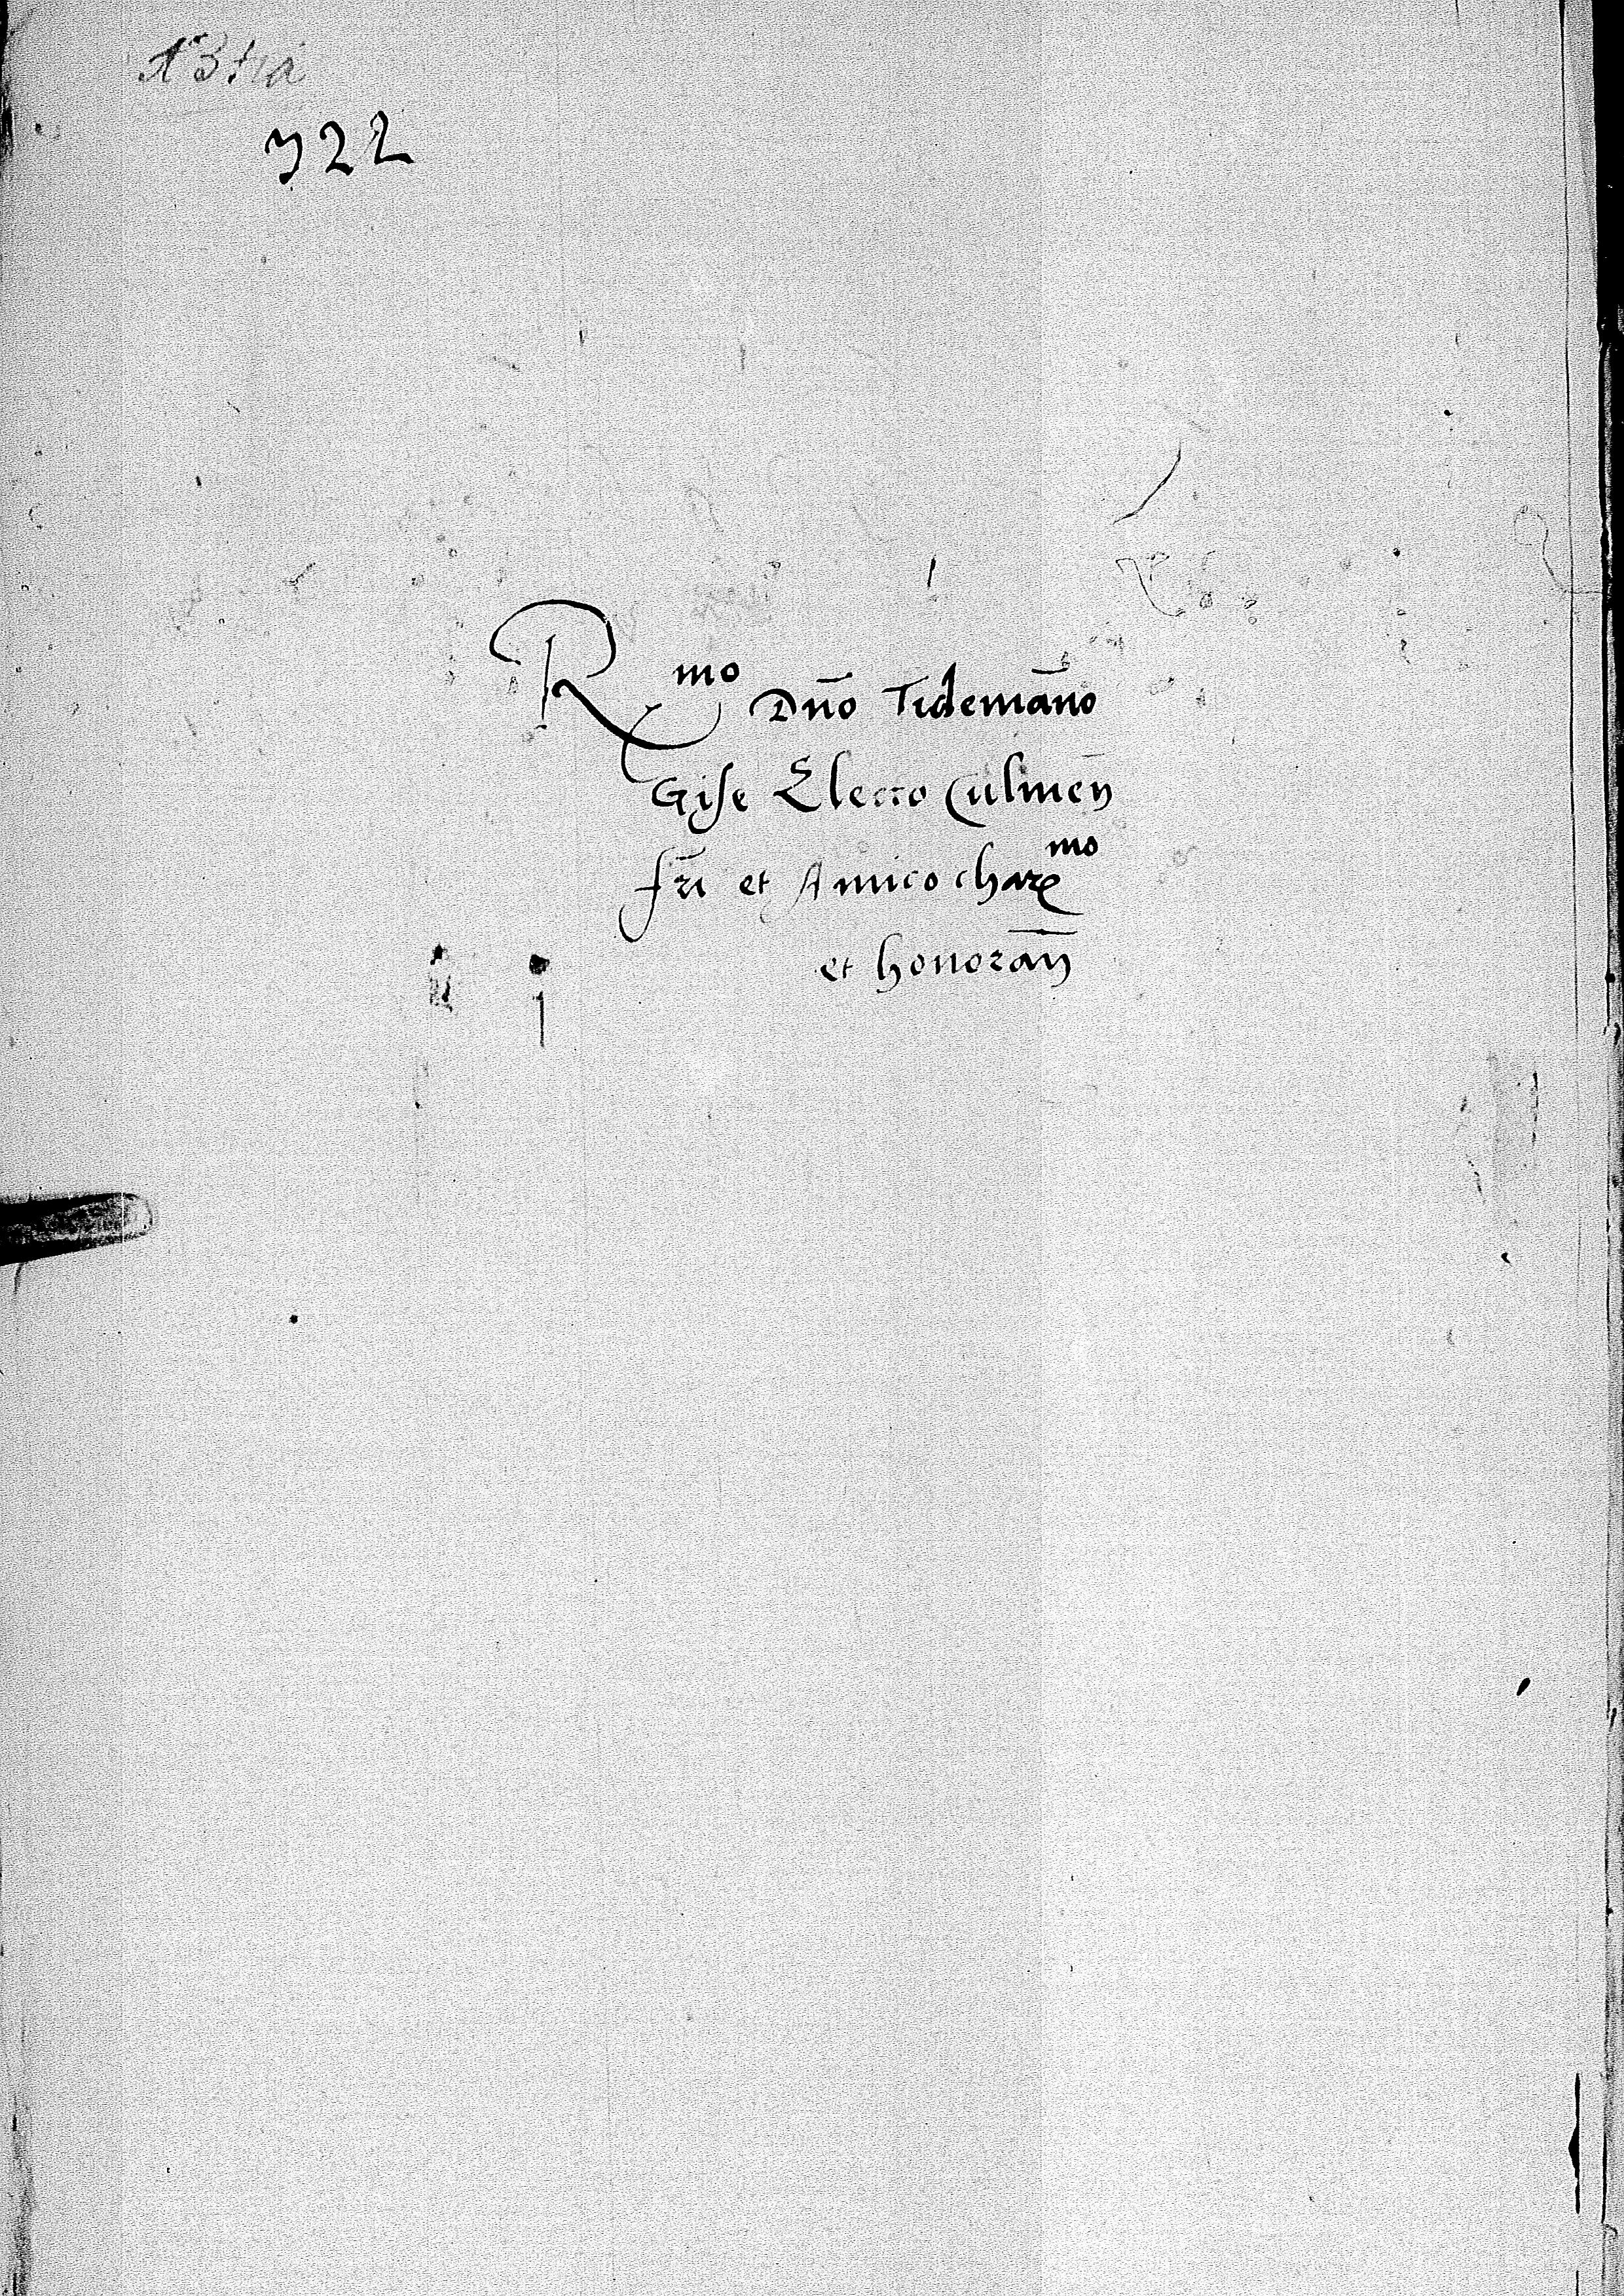 722
R^mo Dn̄o Tidemān̄o
Gise Electo Culmen̄
fr̄i et Amico char^mo
et honorān̄